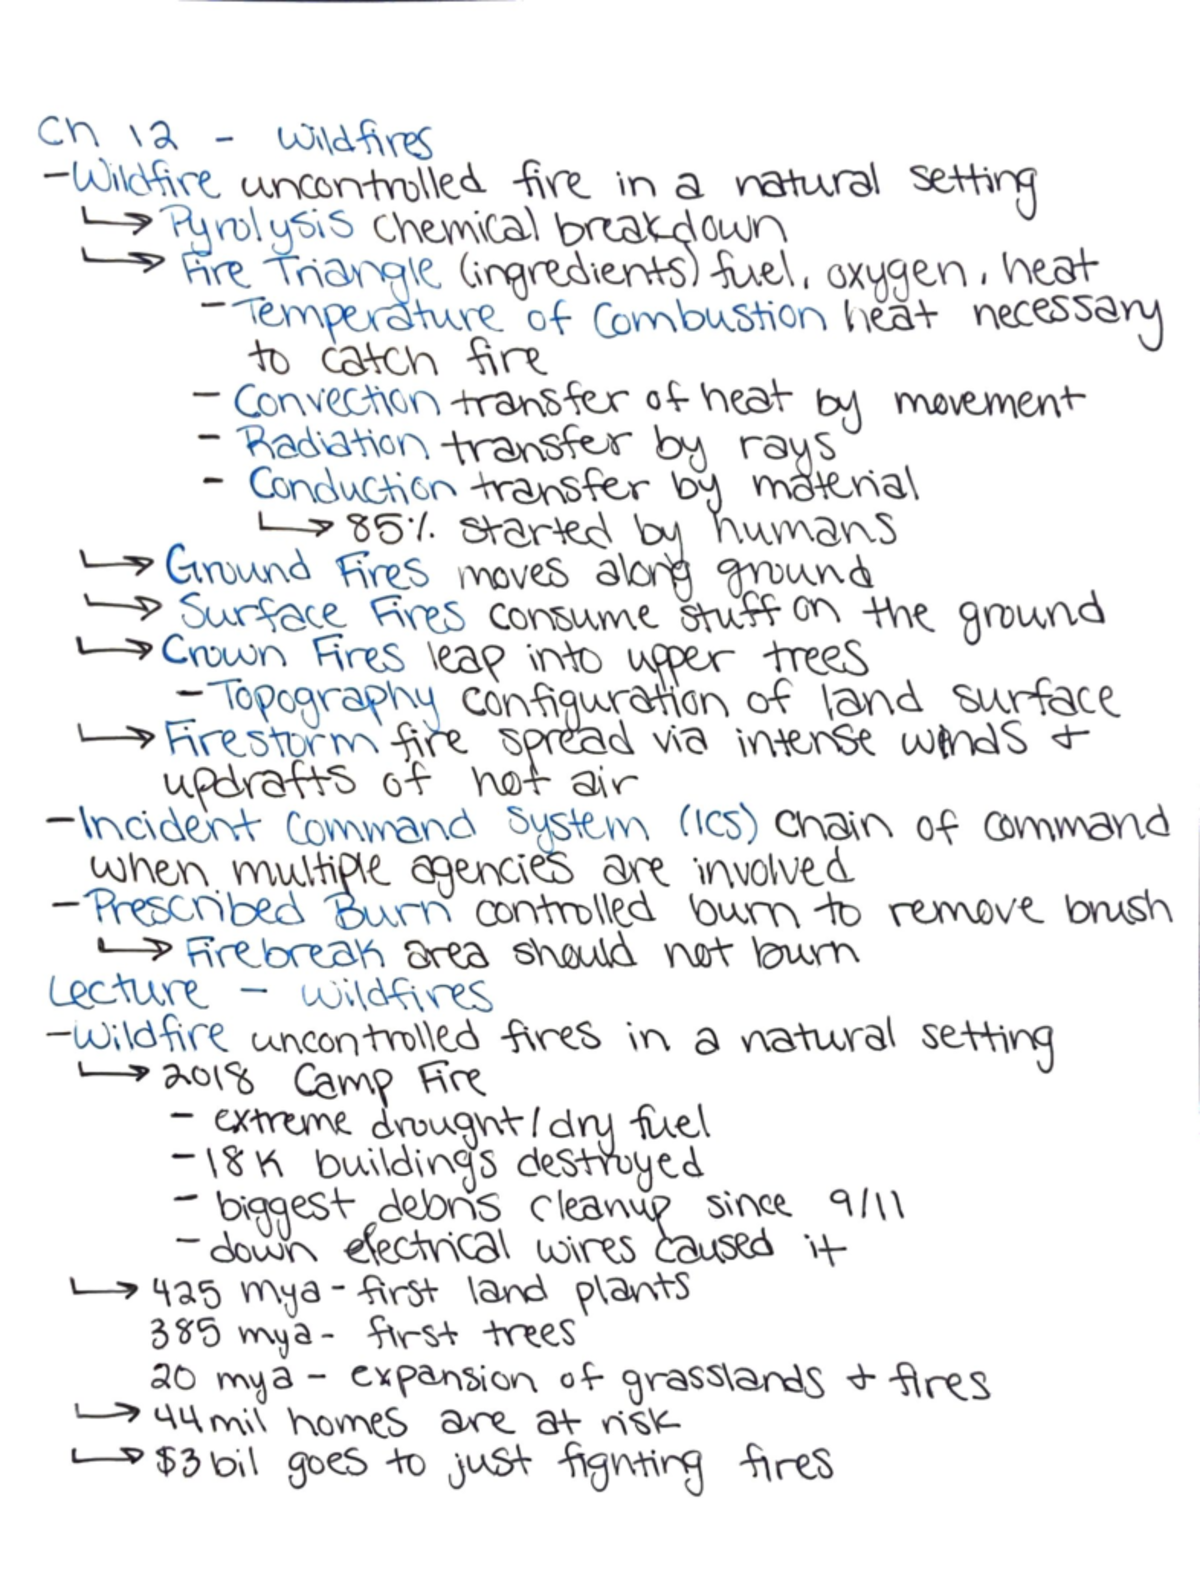 Ch 12 - Wildfires
-Wildfire uncontrolled fire in a natural setting
↳ Pyrolysis chemical breakdown
↳ Fire Triangle (ingredients) fuel, oxygen, heat
- Temperature of Combustion heat necessary
to catch fire
- Convection transfer of heat by movement
- Radiation transfer by rays
- Conduction transfer by material
↳ 85% started by humans
↳ Ground Fires moves along ground
↳ Surface Fires consume stuff on the ground
↳ Crown Fires leap into upper trees
- Topography configuration of land surface
↳ Firestorm fire spread via intense winds +
updrafts of hot air
- Incident Command System (ICS) chain of command
when multiple agencies are involved
- Prescribed Burn controlled burn to remove brush
↳ Firebreak area should not burn
Lecture - Wildfires
-Wildfire uncontrolled fires in a natural setting
↳ 2018 Camp Fire
- extreme drought/dry fuel
- 18K buildings destroyed
- biggest debris cleanup since 9/11
- down electrical wires caused it
↳ 425 mya - first land plants
385 mya - first trees
20 mya - expansion of grasslands + fires
↳ 44 mil homes are at risk
↳ $3 bil goes to just fighting fires